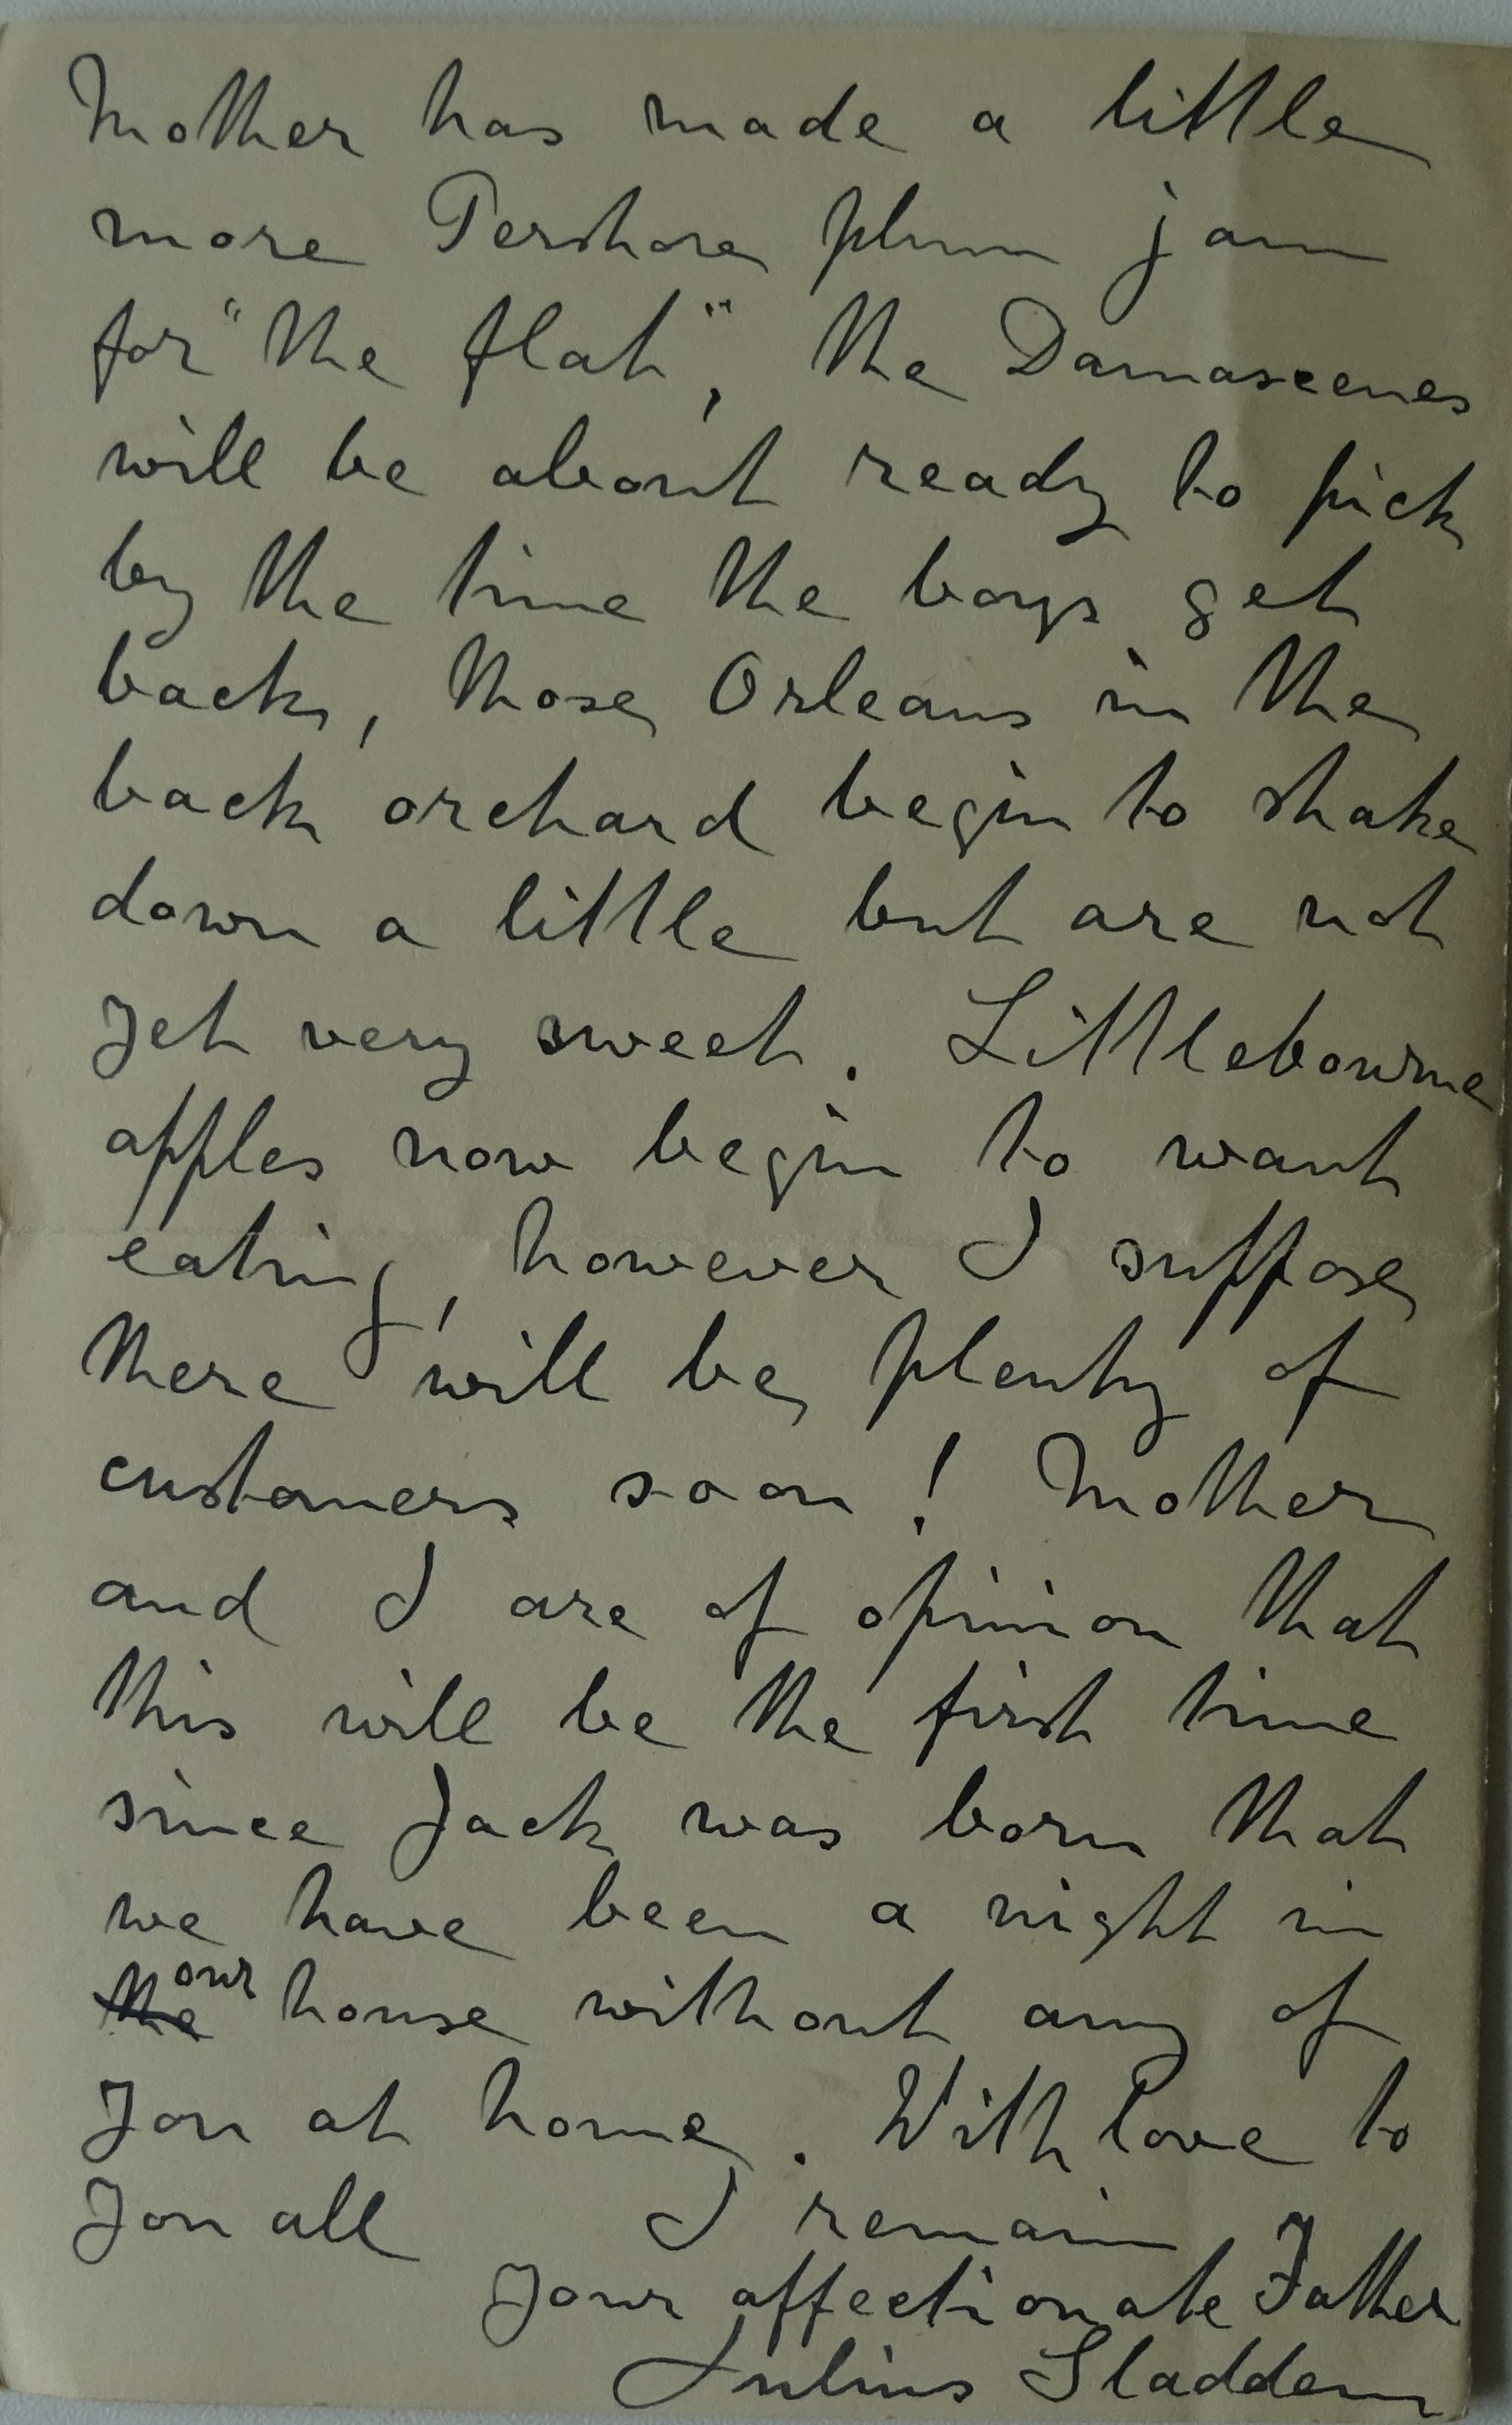 Mother has made a little
more Pershore plum jam
for "the flat", the Damascenes
will be about ready to pick
by the time the boys get
back, those Orleans in the
back orchard begin to shake
down a little but are not
yet very sweet. Littlebourne
apples now begin to want
eating, however I suppose
there will be plenty of
customers soon! Mother
and I are of opinion that
this will be the first time
since Jack was born that
we have been a night in
the our house without any of
you at home. With love to
you all I remain
your affectionate Father
Julius Sladden